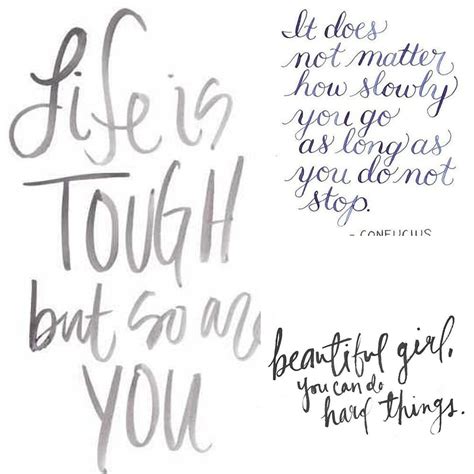 Life is
TOUGH
but so are
YOU
It does
not matter
how slowly
you go
as long as
you do not
stop.
- CONFUCIUS
beautiful girl,
you can do
hard things.